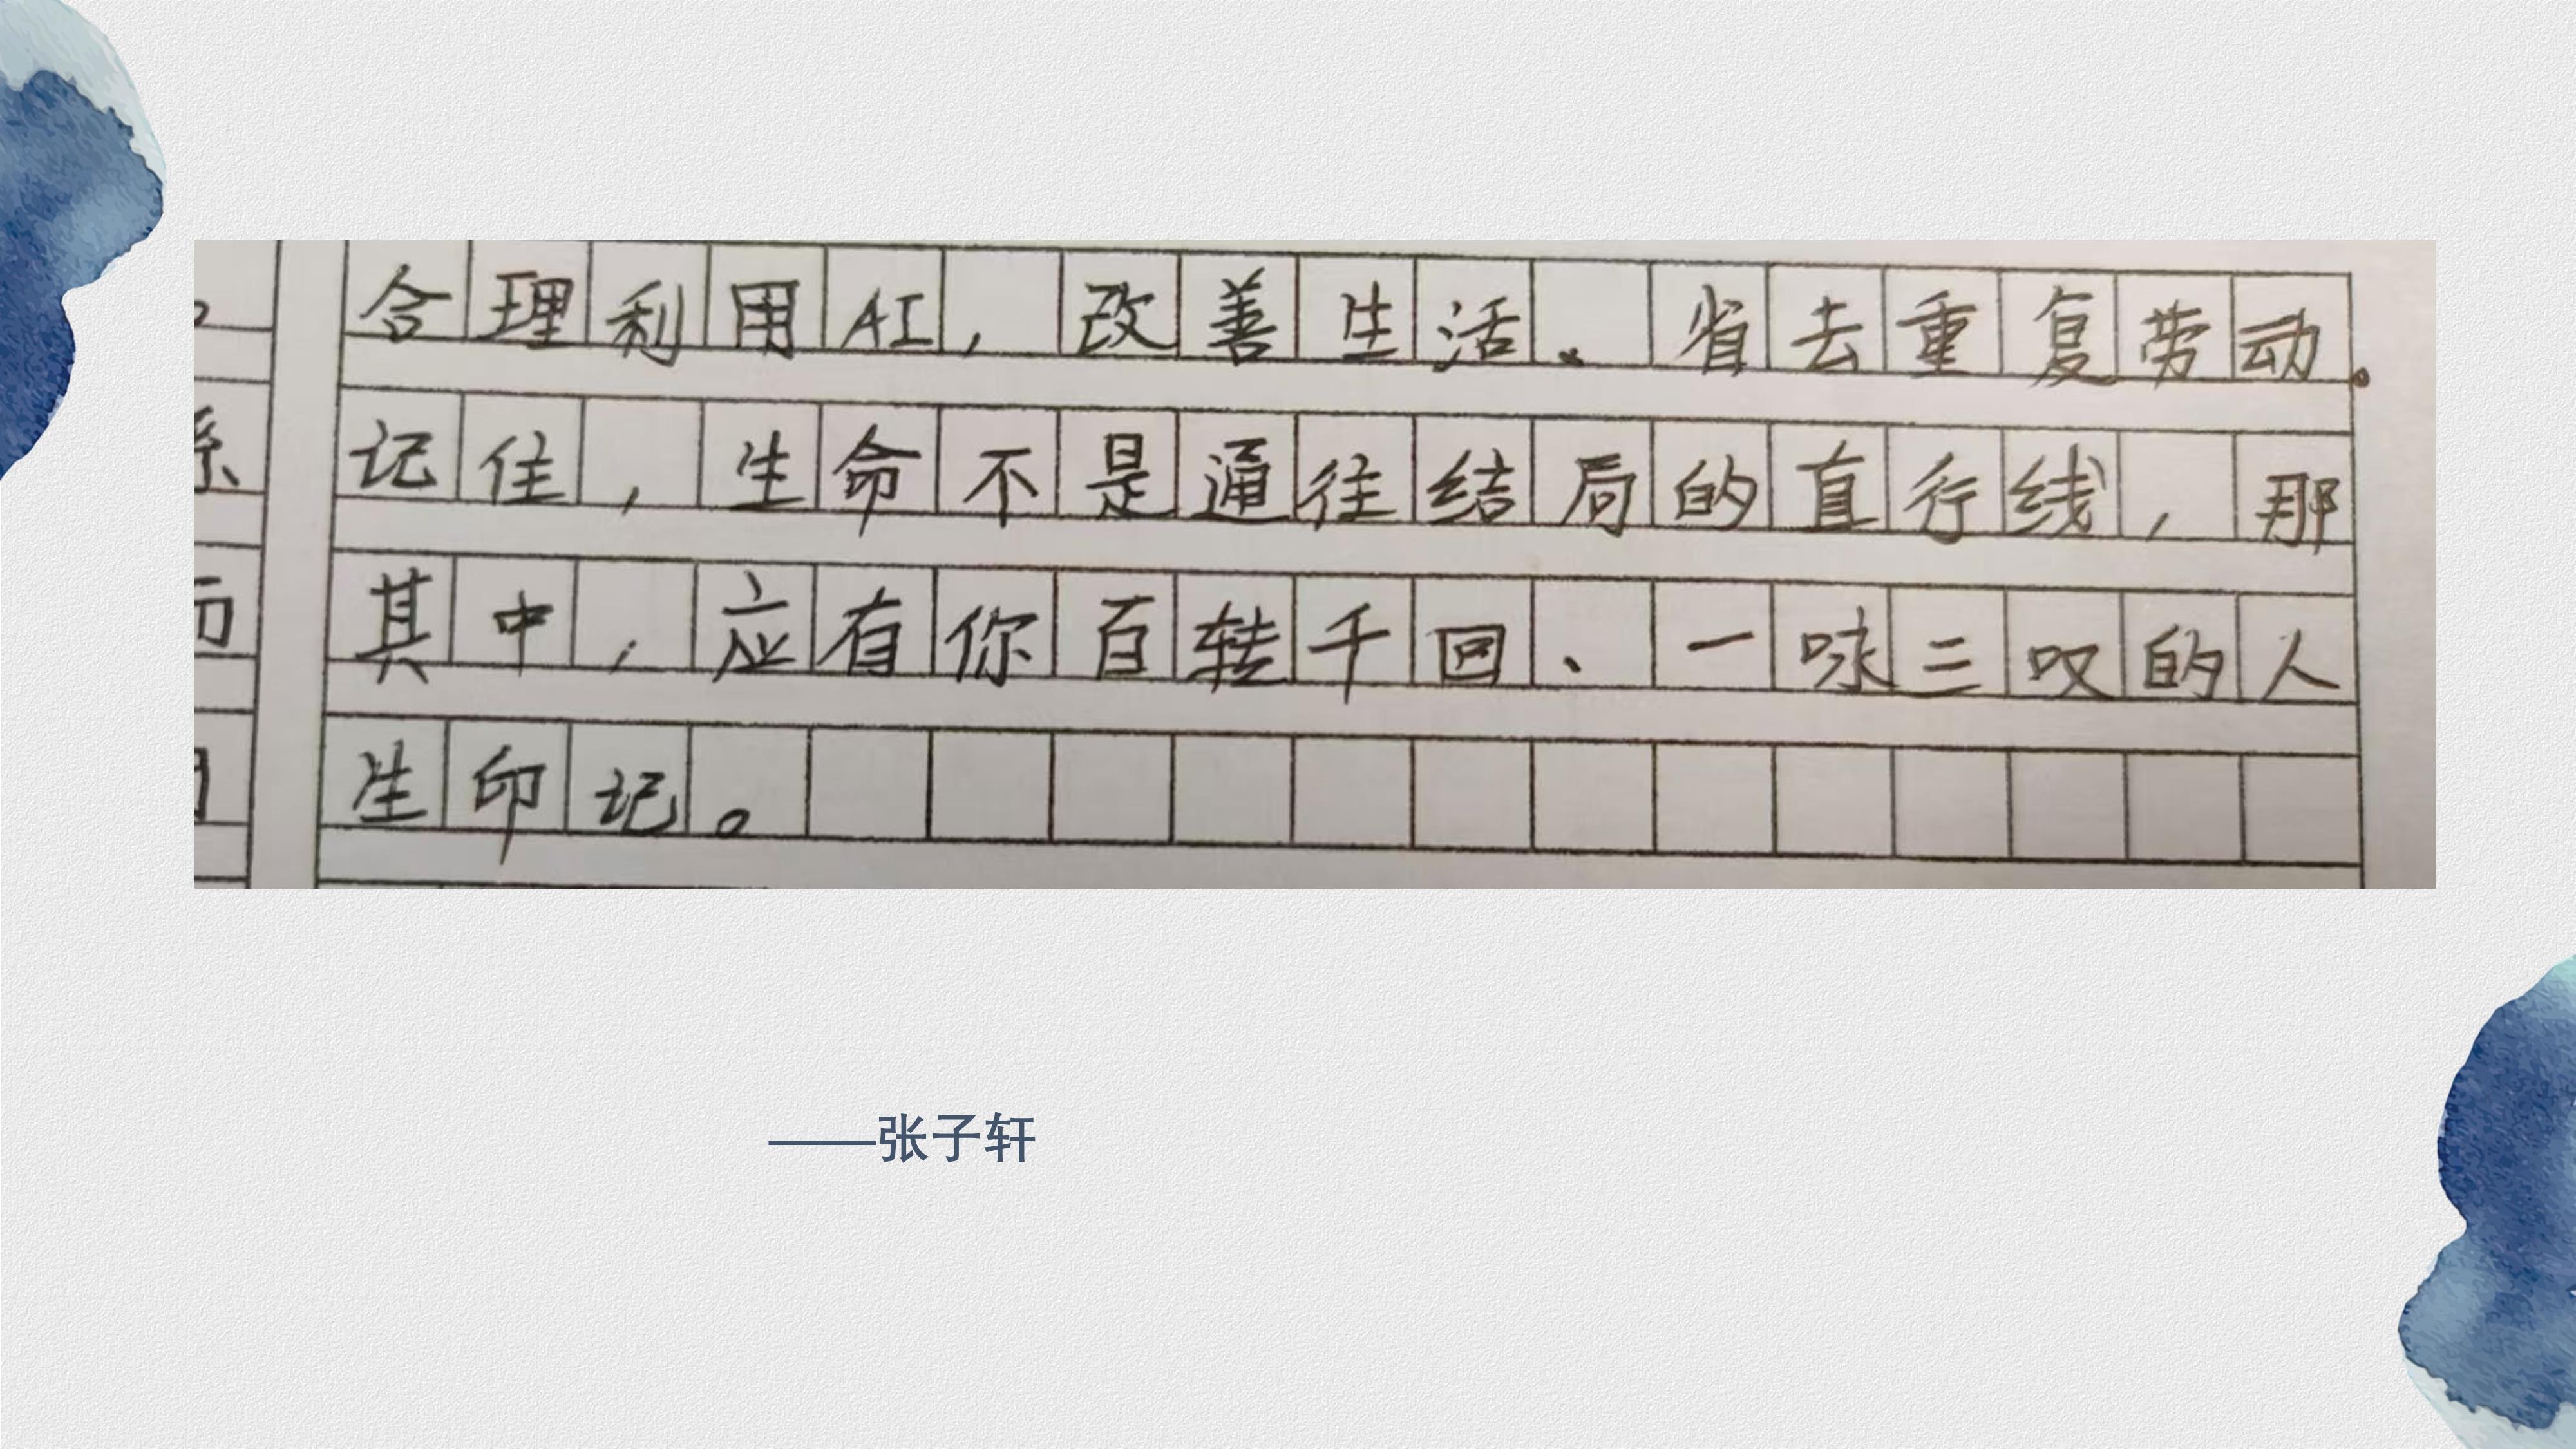 合理利用AI，改善生活、省去重复劳动。
记住，生命不是通往结局的直行线，那
其中，应有你百转千回、一咏三叹的人
生印记。
——张子轩